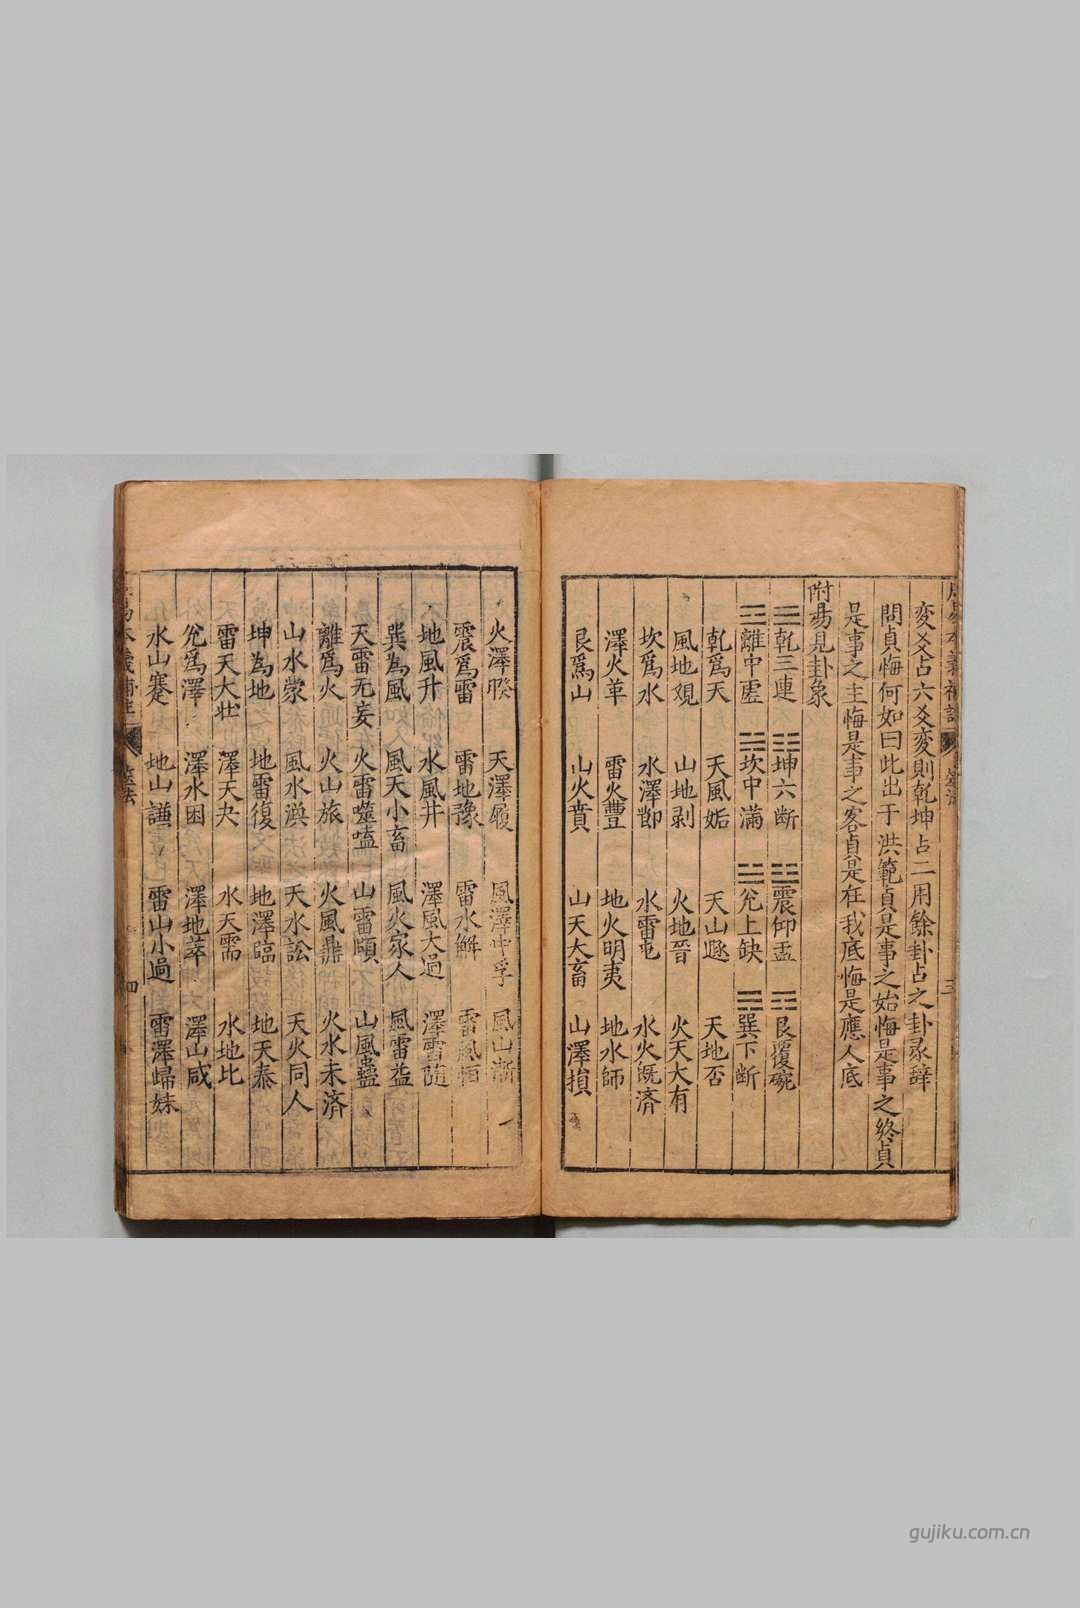 変爻占六爻変則乾坤占二用餘卦占之卦彖辭
問貞悔何如曰此出于洪範貞是事之始悔是事之終貞
是事之主悔是事之客貞是在我底悔是應人底
附昜見卦象
☰乾三連 ☷坤六断 ☳震仰盂 ☶艮覆碗
☲離中虛 ☵坎中滿 ☱兊上缺 ☴巽下断
乾爲天 天風姤 天山遯 天地否
風地覌 山地剥 火地晉 火天大有
坎爲水 水澤節 水雷屯 水火旣済
澤火革 雷火豐 地火明夷 地水師
艮爲山 山火賁 山天大畜 山澤損
火澤睽 天澤履 風澤中孚 風山漸
震爲雷 雷地豫 雷水解 雷風恒
地風升 水風井 澤風大過 澤雷随
巽為風 風天小畜 風火家人 風雷益
天雷无妄 火雷噬嗑 山雷頤 山風蠱
離爲火 火山旅 火風鼎 火水未済
山水蒙 風水渙 天水訟 天火同人
坤為地 地雷復 地澤臨 地天泰
雷天大壮 澤天夬 水天需 水地比
兊爲澤 澤水困 澤地萃 澤山咸
水山蹇 地山謙 雷山小過 雷澤歸妹
四
gujiku.com.cn